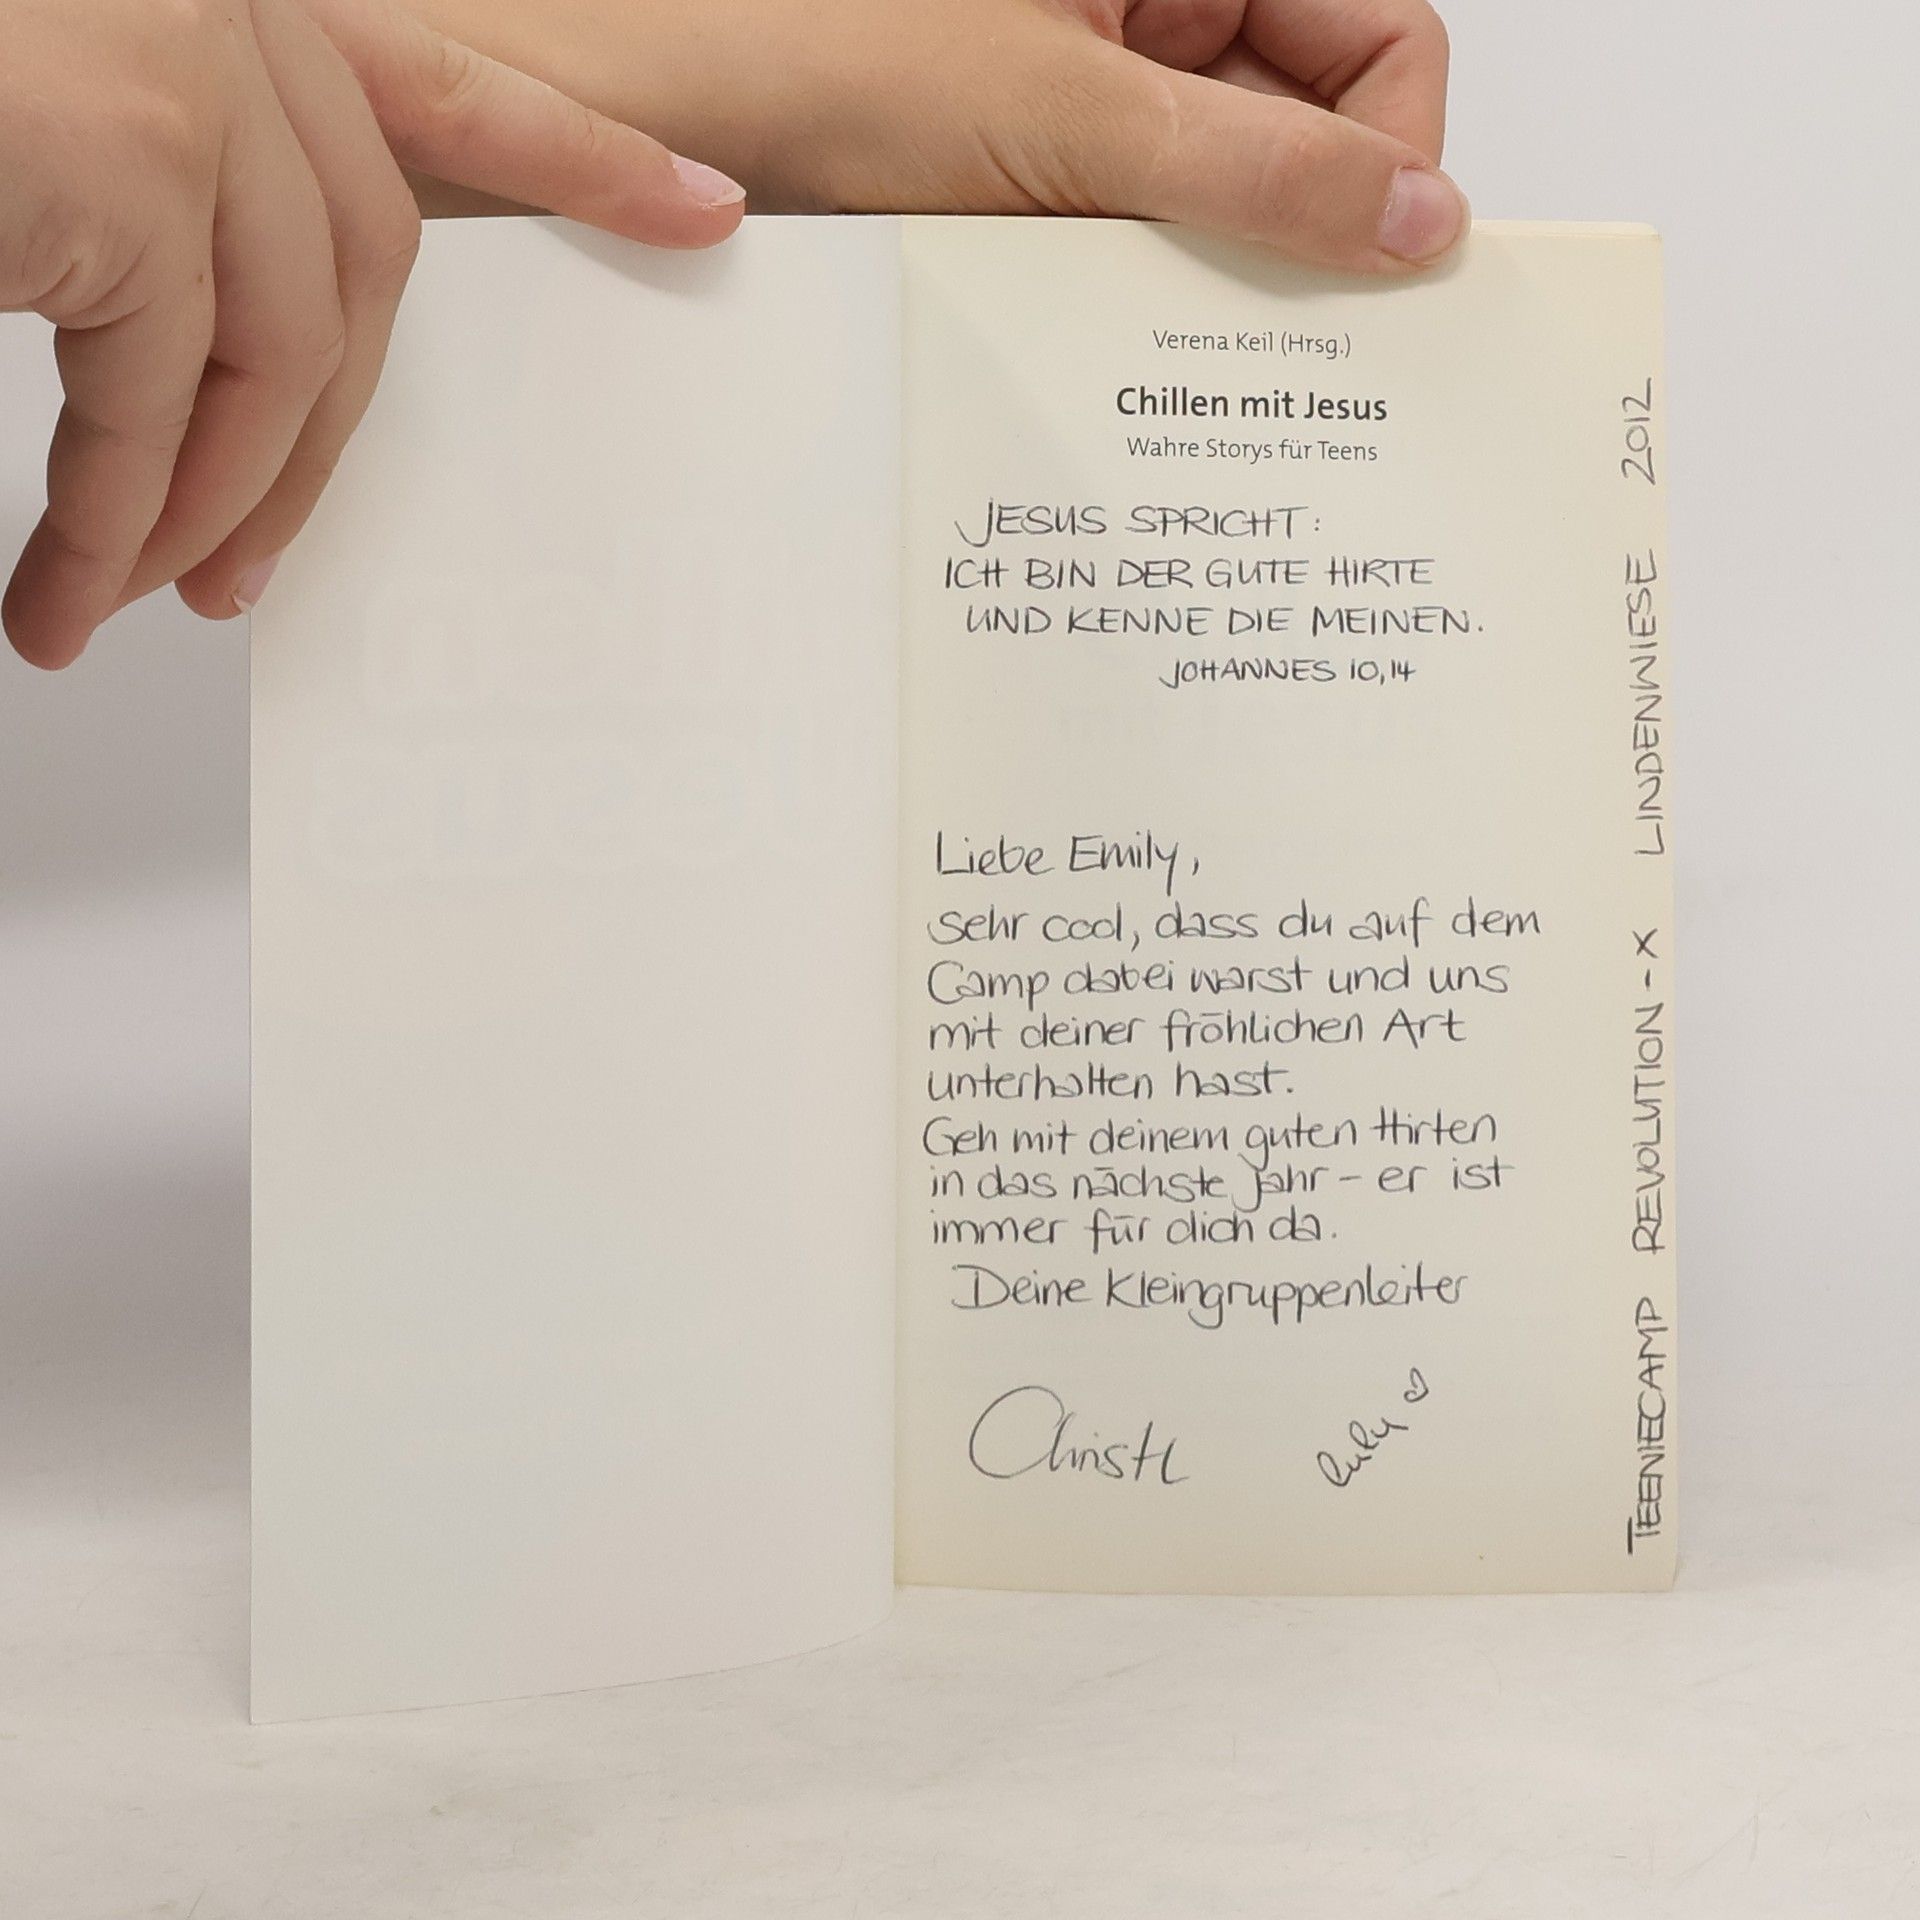 Verena Keil (Hrsg.)
Chillen mit Jesus
Wahre Storys für Teens
JESUS SPRICHT:
ICH BIN DER GUTE HIRTE
UND KENNE DIE MEINEN.
JOHANNES 10,14
Liebe Emily,
sehr cool, dass du auf dem
Camp dabei warst und uns
mit deiner fröhlichen Art
unterhalten hast.
Geh mit deinem guten Hirten
in das nächste Jahr – er ist
immer für dich da.
Deine Kleingruppenleiter
Christl
TEENIECAMP REVOLUTION-X LINDENWIESE 2012